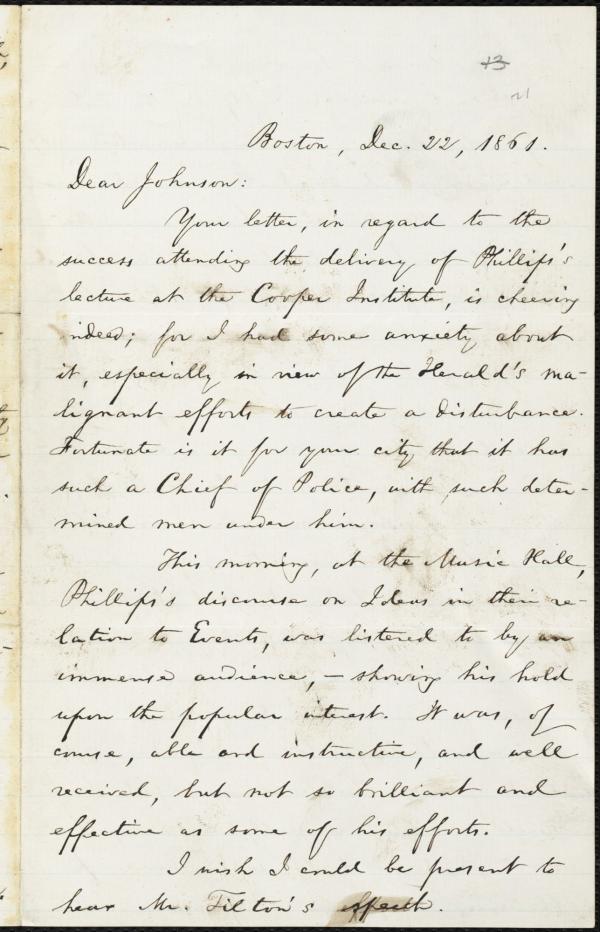 13
21
Boston, Dec. 22, 1861.
Dear Johnson:
Your letter, in regard to the
success attending the delivery of Phillips's
lecture at the Cooper Institute, is cheering
indeed; for I had some anxiety about
it, especially in view of the Herald's ma-
lignant efforts to create a disturbance.
Fortunate is it for your city that it has
such a Chief of Police, with such deter-
mined men under him.
This morning, at the Music Hall,
Phillips's discourse on Ideas in their re-
lation to Events, was listened to by an
immense audience, — showing his hold
upon the popular interest. It was, of
course, able and instructive, and well
received, but not so brilliant and
effective as some of his efforts.
I wish I could be present to
hear Mr. Tilton's speech.